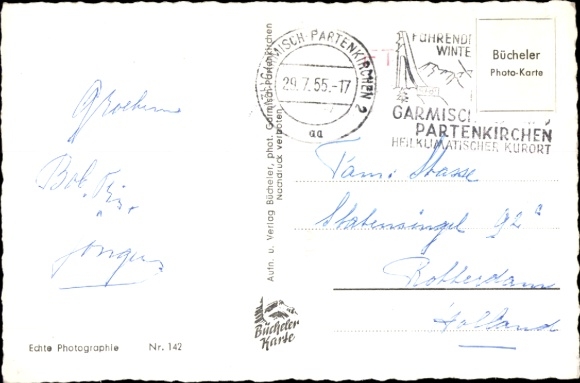 Groetem
Bob. Fijs
Jongens
Echte Photographie Nr. 142
Aufn. u. Verlag Bücheler, phot. Garmisch-Partenkirchen
Nachdruck verboten.
Bücheler
Karte
GARMISCH-PARTENKIRCHEN 2
29.7.55.-17
aa
FÜHREND
WINTE
GARMISCH
PARTENKIRCHEN
HEILKLIMATISCHER KURORT
Bücheler
Photo-Karte
Fam: Stasse
Statensingel 92a
Rotterdam
Holland